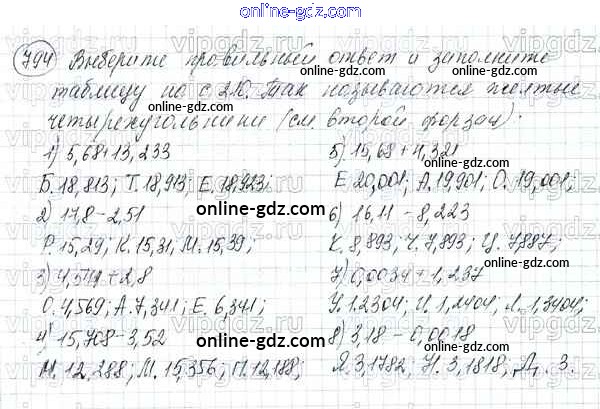 online-gdz.com
794 Выберите правильный ответ и заполните
таблицу на с 210. Так называются желтые
четырехугольники (см. второй форзац).
1) 5,68+13,233
Б. 18,813; Т. 18,913; Е. 18,923;
2) 17,8-2,51
Р. 15,29; К. 15,31; М. 15,39;
3) 4,541+2,8
О. 4,569; А. 7,341; Е. 6,341;
4) 15,708-3,52
М. 12,288; М. 15,356; П. 12,188;
5) 15,68+4,321
Е 20,001; А. 19,901; О. 19,001;
6) 16,11-8,223
К. 8,893; Ч. 7,893; Ц. 7,887;
7) 0,0034+1,237
У. 1.2304; И. 1,2404; Л. 1,3404;
8) 3,18-0,0018
Я. 3,1782; Н. 3,1818; Д. 3.
online-gdz.com
online-gdz.com
online-gdz.com
online-gdz.com
online-gdz.com
online-gdz.com
online-gdz.com
online-gdz.com